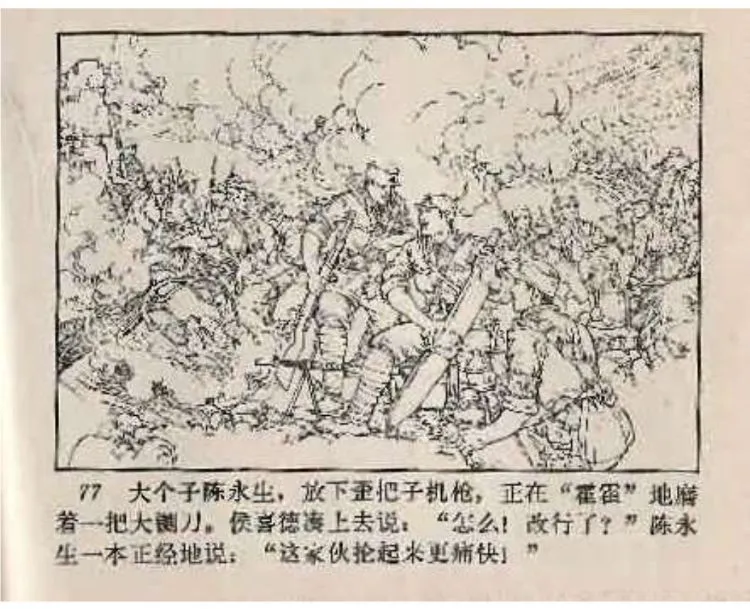 77 大个子陈永生，放下歪把子机枪，正在“霍霍”地磨
着一把大铡刀。侯喜德凑上去说：“怎么！改行了？”陈永
生一本正经地说：“这家伙抡起来更痛快！”